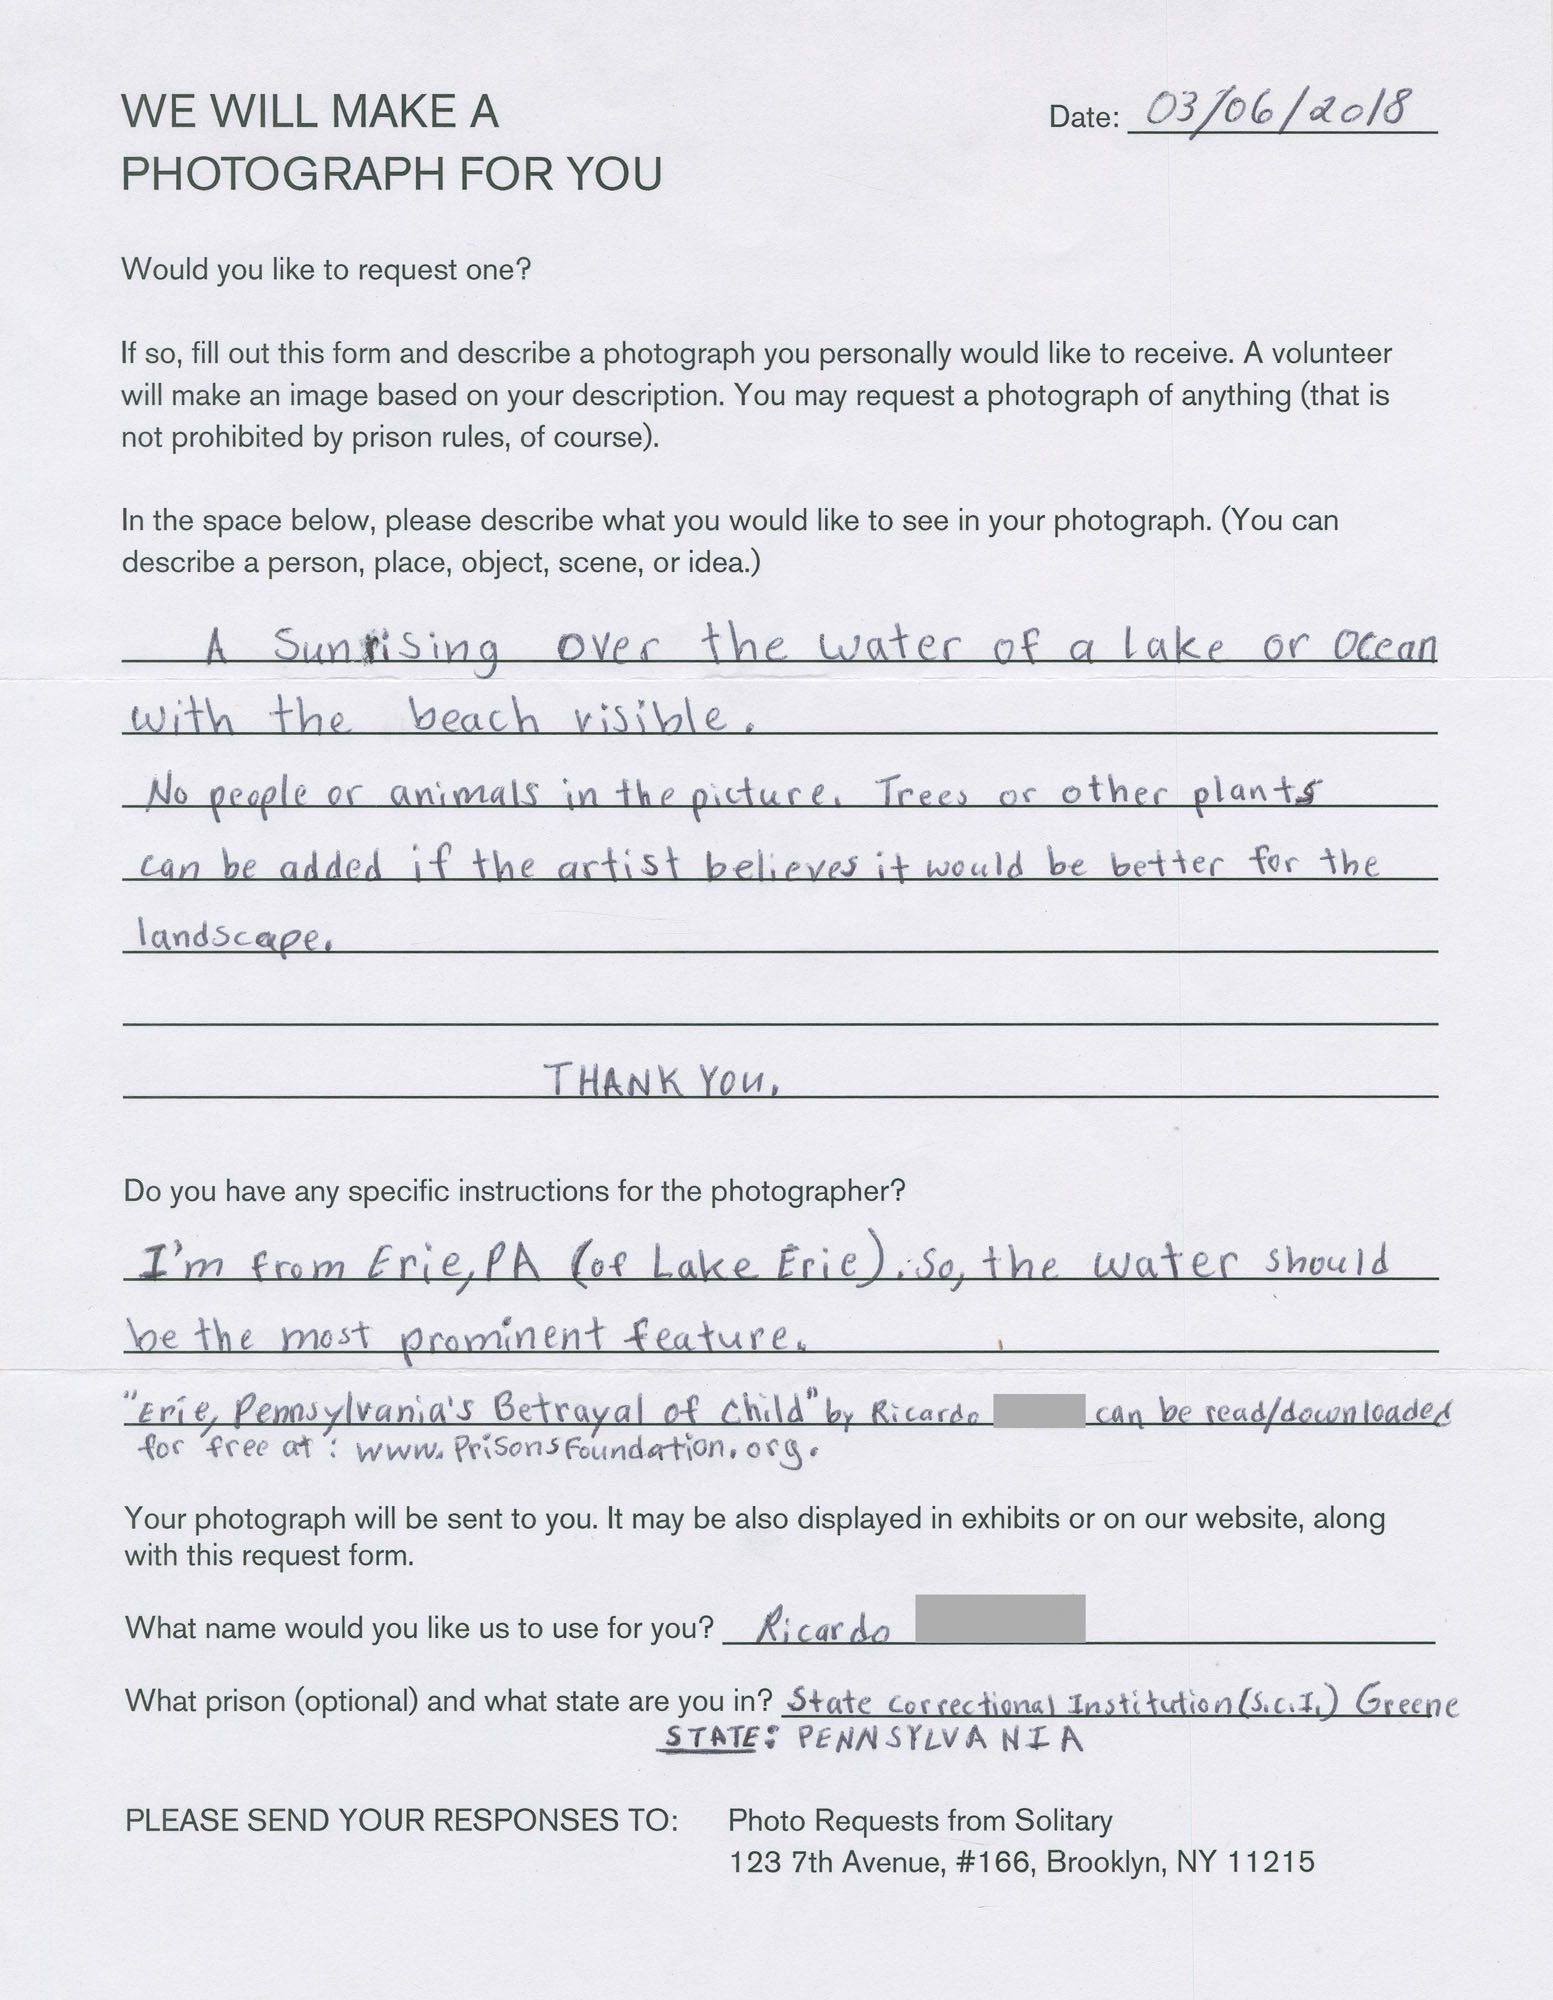 WE WILL MAKE A
PHOTOGRAPH FOR YOU
Date: 03/06/2018
Would you like to request one?
If so, fill out this form and describe a photograph you personally would like to receive. A volunteer
will make an image based on your description. You may request a photograph of anything (that is
not prohibited by prison rules, of course).
In the space below, please describe what you would like to see in your photograph. (You can
describe a person, place, object, scene, or idea.)
A Sunrising over the water of a lake or Ocean
with the beach visible.
No people or animals in the picture. Trees or other plants
can be added if the artist believes it would be better for the
landscape.
THANK YOU.
Do you have any specific instructions for the photographer?
I'm from Erie, PA (of Lake Erie). So, the water should
be the most prominent feature.
"Erie, Pennsylvania's Betrayal of Child" by Ricardo can be read/downloaded
for free at: www.PrisonsFoundation.org.
Your photograph will be sent to you. It may be also displayed in exhibits or on our website, along
with this request form.
What name would you like us to use for you? Ricardo
What prison (optional) and what state are you in? State Correctional Institution (S.C.I.) Greene
STATE: PENNSYLVANIA
PLEASE SEND YOUR RESPONSES TO: Photo Requests from Solitary
123 7th Avenue, #166, Brooklyn, NY 11215